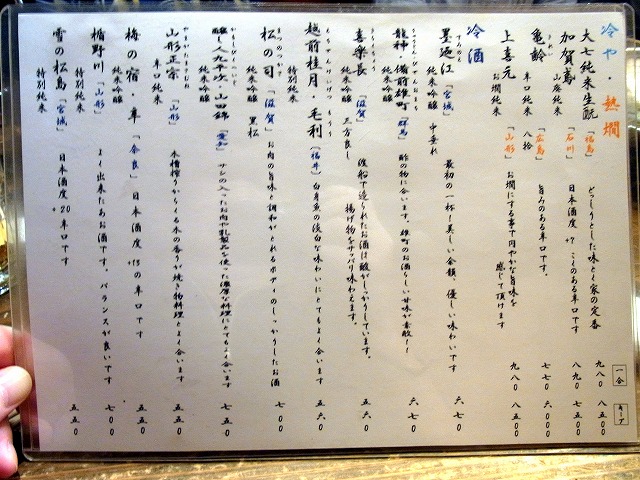 冷や・熱燗
一合
キープ
大七純米生酛「福島」 どっしりとした味とく家の定番 九八〇 八五〇〇
加賀鳶 山廃純米「石川」 日本酒度 +7 こくのある辛口です 八九〇 七五〇〇
亀齢 辛口純米 八拾「広島」 旨みのある辛口です。 七七〇 六〇〇〇
上喜元 お燗純米「山形」 お燗にする事で円やかな旨味を感じて頂けます 九八〇 八五〇〇
冷酒
墨廼江「宮城」 純米吟醸 中垂れ 最初の一杯!美しい余韻、優しい味わいです 六七〇
龍神 備前雄町「群馬」 純米吟醸 酢の物に合います。雄町のお酒らしい甘味が素敵!! 六七〇
喜楽長「滋賀」 純米吟醸 三方良し 渡船で造られたお酒は酸がしっかりしています。揚げ物をサッパリ味わえます。 五六〇
越前桂月・毛利「福井」 特別純米 白身魚の淡白な味わいにとてもよく合います 五六〇
松の司「滋賀」 純米吟醸 黒松 お肉の旨味と調和がとれるボディのしっかりしたお酒 七〇〇
醸し人九平次・山田錦「愛知」 純米吟醸 サシの入ったお肉や乳製品を使った濃厚な料理にとてもよく合います 七五〇
山形正宗「山形」 辛口純米 木槽搾りからくる木の香りが焼き物料理とよく合います 五五〇
梅の宿 辛「奈良」 純米吟醸 日本酒度 +15の辛口です 五五〇
楯野川「山形」 純米吟醸 よく出来たあお酒です。バランスが良いです 七〇〇
雪の松島「宮城」 特別純米 日本酒度 +20 辛口です 五五〇